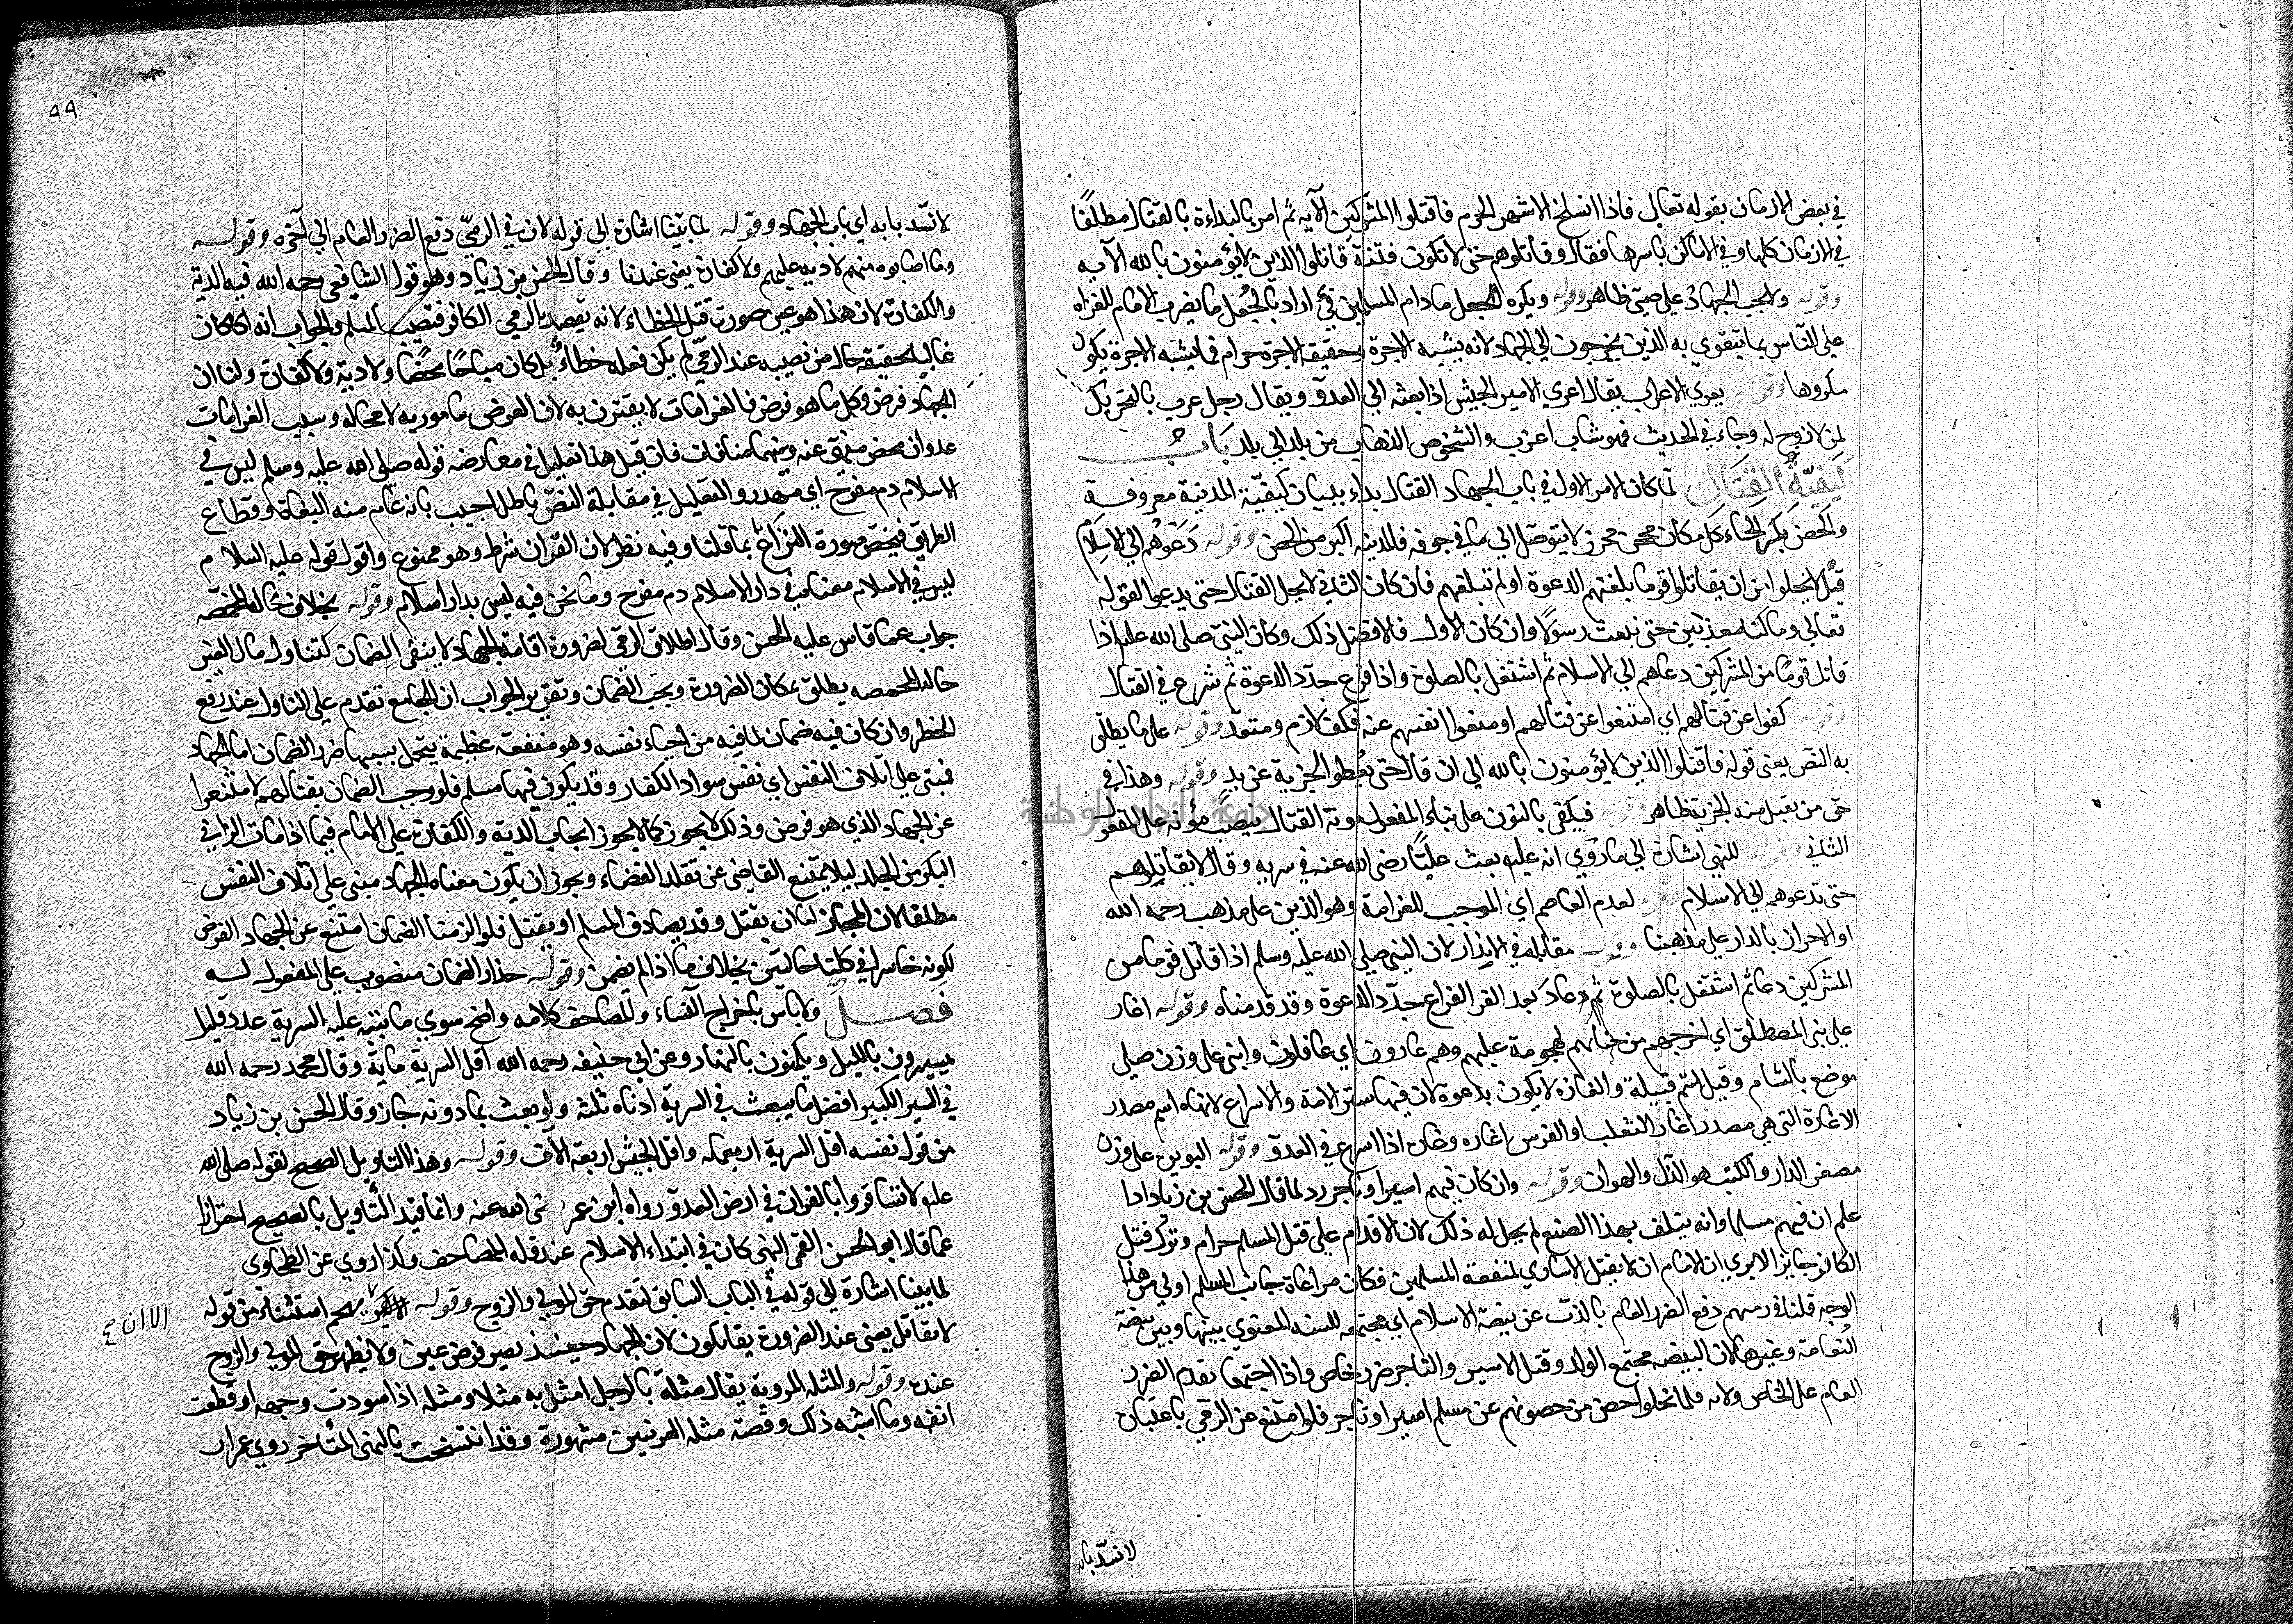 في بعض الازمان بقوله تعالى فاذا انسلخ الاشهر الحرم فاقتلوا المشركين الآيه ثم امر بالبداءة بالقتال مطلقًا
في الازمان كلها وفي الاماكن باسرها فقال وقاتلوهم حتى لا تكون فتنة قاتلوا الذين لا يؤمنون بالله الآيه
وقوله ولا يجب الجهاد على صبي ظاهر وقوله ويكره الجعل ما دام للمسلمين فئ اراد بالجُعل ما يضرب الامام للغزاه
على الناس بما يتقوي به الذين يخرجون الي الجهاد لانه يشبه الاجرة وحقيقة الاجرة حرام فما يشبه الاجرة يكون
مكروها وقوله يعزي الاعزب يقال اعزي الامير الجيش اذا بعثه الى العدوّ ويقال رجل عزب بالتحريك
لمن لا زوج له وجاء في الحديث فهو شاب اعزب والشخوص الذهاب من بلد الي بلد بَاب
كَيفيّة القتَال لما كان الامر الاول في باب الجهاد القتال بداء ببيان كيفيّة المدينة معروفة
والحصن بكسر الحاء كل مكان محمي محرز لا يتوصل الى ما في جوفه فالمدينه اكبر من الحصن وقوله دَعَوْهُم الي الاسلام
قيل لا يخلوا من ان يقاتلوا قوما بلغتهم الدعوة او لم تبلغهم فان كان الثاني لا يحل القتال حتى يدعوا لقوله
تعالى وما كنا معذبين حتى نبعث رسولًا وان كان الاول فالافضل ذلك وكان النبي صلى الله عليه اذا
قاتل قومًا من المشركين دعاهم الي الاسلام ثم اشتغل بالصلوة واذا فرغ جدّد الدعوة ثم شرع في القتال
وقوله كفوا عن قتالهم اي امتنعوا عن قتالهم او منعوا انفسهم عنه فكف لازم ومتعد وقوله على ما يطلق
به النصّ يعني قوله فاقتلوا الذين لا يؤمنون بالله الى ان قال حتى يُعطوا الجزية عن يد وقوله وهذا في
حق من يقبل منه الجزية ظاهر وقوله فيكفي بالنون على بناء المفعول مونة القتال بنصب مؤنة على المفعول
الثاني وقوله للنهي اشارة الي ما روي انه عليه بعث عليًّا رضى الله عنه في سريه وقال لا يقاتلوهم
حتى تدعوهم الي الاسلام وقوله لعدم العاصم اي الموجب للغرامة وهو الدين على مذهب رحمه الله
او الاحراز بالدار على مذهبنا وقوله مقابله في الانذار لان النبي صلى الله عليه وسلم اذا قاتل قوما من
المشركين دعا ثم اشتغل بالصلوة ثم عاد بعد الفراغ جدّد الدعوة وقد قدمناه وقوله اغار
على بني المصطلق اي اخرجهم من خبائهم لهجومه عليهم وهم غارون اي غافلون وابنى على وزن حبلي
موضع بالشام وقيل اسم قبيلة والغارة لا يكون بدعوة لان فيها ستر الامة والاسراع لانها اسم مصدر
الاغارة التى هي مصدر اغار الثعلب او الفرس اغاره وغارة اذا اسرع في العدوّ وقوله البوير على وزن
مصغر الدار والكبت هو الذل والهوان وقوله وان كان فيهم اسير او تاجر رد لما قال الحسن بن زياد اذا
علم ان فيهم مسلما وانه يتلف بهذا الصنع لم يحل له ذلك لان الاقدام على قتل المسلم حرام وترك قتل
الكافر جايز الا يري ان للامام ان لا يقتل الاساري لمنفعة المسلمين فكان مراعاة جانب المسلم اولي من هذا
الوجه قلنا في رميهم دفع الضرر العام بالذب عن بيضة الاسلام اي مجتمعه للشبه المعنوي بينها وبين بيضة
النعامة وغيرها لان البيضه مجتمع الولد وقتل الاسير والتاجر ضرر خاص واذا اجتمعا يقدم الضرر
العام على الخاص ولانه قلما يخلوا حصن من حصونهم عن مسلم اسير او تاجر فلو امتنع عن الرمي باعتباره
لانسدّ بابه
44
لانسّد بابه اي باب الجهاد وقوله لما بيّنا اشارة الى قوله لان في الرمي دفع الضرر العام الي آخره وقوله
وما اصابوه منهم لا دية عليهم ولا كفارة يعني عندنا وقال الحسن بن زياد وهو قول الشافعي رحمه الله فيه الدية
والكفارة لان هذا هو عين صورة قتل الخطاء لانه يقصد بالرمي الكافر فتصيب المسلم والجواب انه اذا كان
عالما بحقيقة حال من يصيبه عند الرمي لم يكن فعله خطاء بل كان مباحًا محضًا ولا دية ولا كفارة ولنا ان
الجهاد فرض وكل ما هو فرض فالغرامات لا يقترن به لان الفرض مامور به لا محاله وسبب الغرامات
عدوان محض منهي عنه وبينهما منافات فان قيل هذا تعليل في معارضه قوله صلى الله عليه وسلم ليس في
الاسلام دم مفرج اي مهدر والتعليل في مقابلة النصّ باطل اجيب بانه عام خص منه البغاة وقطاع
الطريق فيخص صورة النزاع بما قلنا وفيه نظر لان القران شرط وهو ممنوع واقول قوله عليه السلام
ليس في الاسلام معناه ليس في دار الاسلام دم مفرج وما نحن فيه ليس بدار اسلام وقوله بخلاف حالة المخمصة
جواب عما قاس عليه الحسن وقال اطلاق الرمي لضرورة اقامة الجهاد لا ينفي الضمان كتناول مال الغير
حالة المخمصه يطلق بمكان الضرورة ويجب الضمان وتقرير الجواب ان الجامع تقدم على التناول عند رفع
الخطر وان كان فيه ضمان لما فيه من احياء نفسه وهو منفعة عظيمة يتحمل بسببها ضرر الضمان اما الجهاد
فبني على اتلاف النفس اي نفس سواد الكفار وقد يكون فيها مسلم فلو وجب الضمان بقتالهم لامتنعوا
عن الجهاد الذي هو فرض وذلك لا يجوز كما لا يجوز ايجاب الدية والكفارة على الامام فيما اذا مات الزاني
البكر من الجلد ليلا يمتنع القاضى عن تقلد القضاء ويجوز ان يكون معناه الجهاد مبنى على اتلاف النفس
مطلقا لان المجاهد اما ان يقتل وقد يصادف المسلم او يقتل فلو الزمنا الضمان امتنع عن الجهاد الفرض
لكونه خاسرا في كلتا حالتين بخلاف ما اذا لم يضمن وقوله حذار الضمان منصوب على المفعول له
فَصـل ولا باس باخراج النساء والمصاحف كلامه واضح سوي ما ننبه عليه السرية عدد قليل
يسيرون بالليل ويكمنون بالنهار وعن ابي حنيفه رحمه الله اقل السرية ماية وقال محمد رحمه الله
في السير الكبير افضل ما يبعث في السرية ادناه ثلثة ولو بعث بما دونه جاز وقال الحسن بن زياد
من قول نفسه اقل السرية اربعمايه واقل الجيش اربعة الآف وقوله وهذا التاويل الصحيح لقوله صلى الله
عليه لا تسافروا بالقران في ارض العدوّ رواه ابن عمر رضى الله عنه وانما قيد التأويل بالصحيح احترازا
عما قال ابو الحسن القمي النهى كان في ابتداء الاسلام عند قلة المصاحف وكذا روي عن الطحاوى
لما بينا اشارة الي قوله في الباب السابق لتقدم حق المولي والزوج وقوله يهجم استثناء من قوله
الا ان ع
لا يقاتل يعنى عند الضرورة يقاتلون لان الجهاد حينئذ يصير فرض عين ولا يظهر حق المولي والزوج
عنده وقوله والمثلة المروية يقال مثلة بالرجل امثل به مثلا ومثلة اذا سودت وجهه او قطعت
انفه وما اشبه ذلك وقصة مثلة العرنيين مشهورة وقد انتسخت بالنهى المتأخر روي عمران